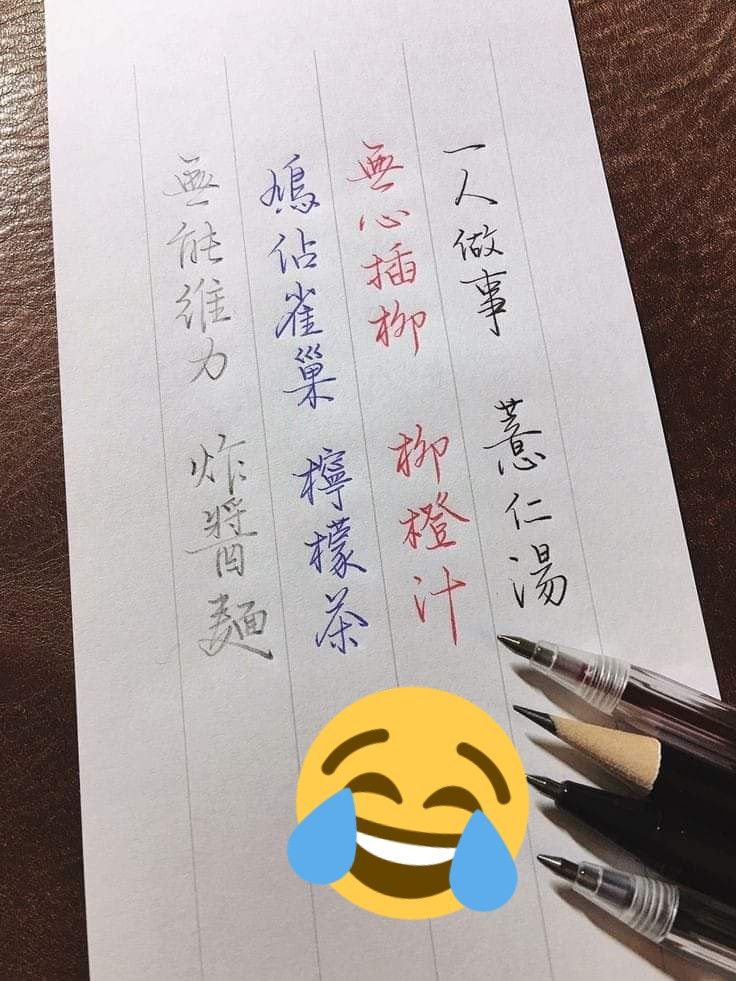 一人做事 薏仁湯
無心插柳 柳橙汁
鳩佔雀巢 檸檬茶
無能維力 炸醬麵